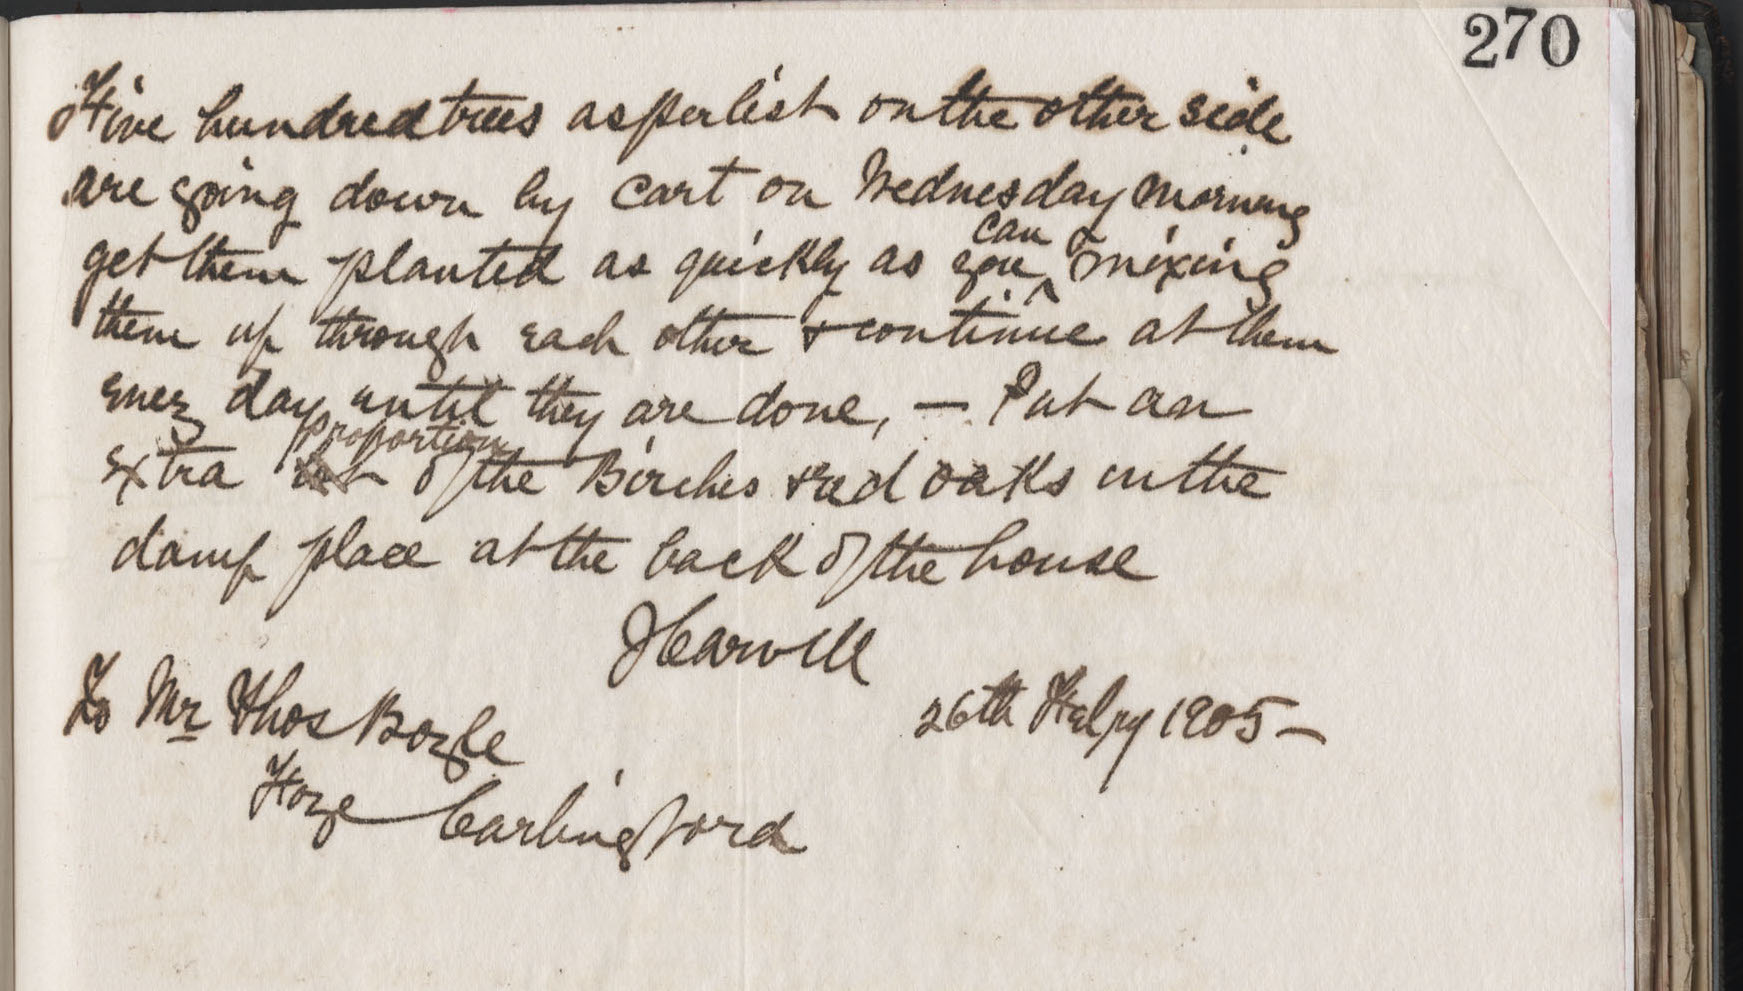 270
Five hundred trees as per list on the other side
are going down by cart on Wednesday morning
get them planted as quickly as you can & mixing
them up through each other & continue at them
every day until they are done, — Put an
extra proportion of the Birches & red oaks in the
damp place at the back of the house
J Carvill
To Mr Thos Boyle
26th Feby 1905 —
Foye Carlingford